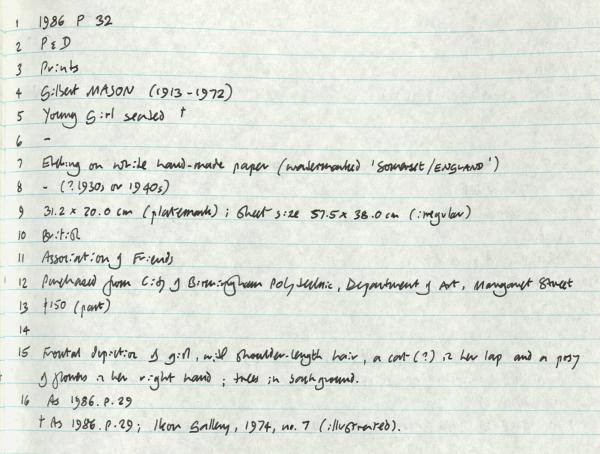 1 1986 P 32
2 P & D
3 Prints
4 Gilbert MASON (1913-1972)
5 Young Girl seated †
6 -
7 Etching on white hand-made paper (watermarked 'SOMERSET/ENGLAND')
8 - (? 1930s or 1940s)
9 31.2 x 20.0 cm (platemark); sheet size 57.5 x 38.0 cm (irregular)
10 British
11 Association of Friends
12 Purchased from City of Birmingham Polytechnic, Department of Art, Margaret Street
13 £150 (part)
14
15 Frontal depiction of girl, with shoulder-length hair, a cat (?) in her lap and a posy
of flowers in her right hand; trees in background.
16 As 1986.P.29
† As 1986.P.29; Ikon Gallery, 1974, no. 7 (illustrated).